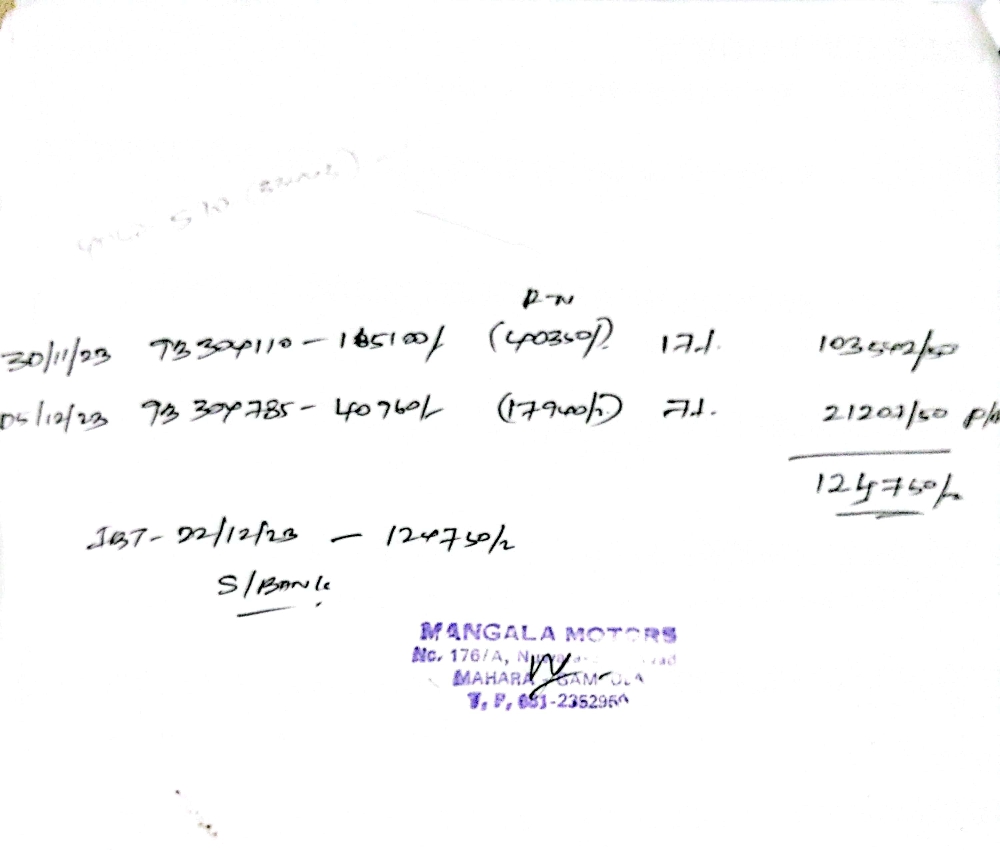 R-N
30/11/23 93304110 - 165100/- (40350/-) 17%. 103542/50
05/12/23 93304785 - 40760/- (17940/-) 7%. 21207/50
124750/-
IBT - 22/12/23 - 124750/-
S/BANK
MANGALA MOTORS
No. 176/A,
MAHARA - GAMPOLA
T. P. 081-235296